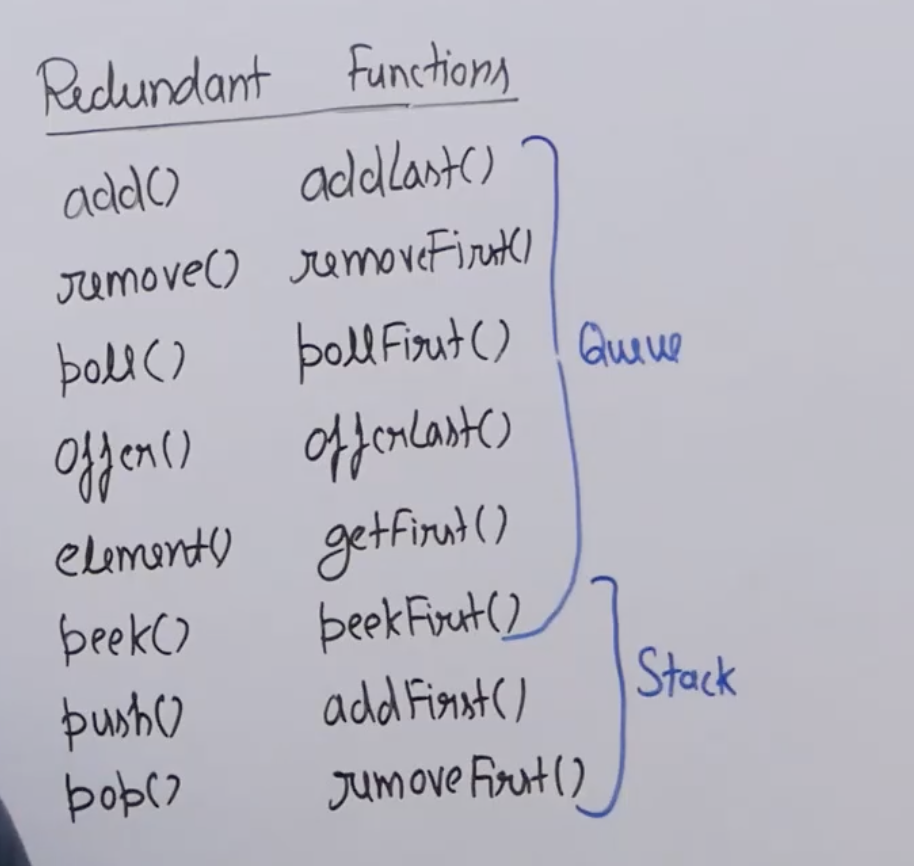 Redundant Functions
add() addLast()
remove() removeFirst()
poll() pollFirst()
Queue
offer() offerLast()
element() getFirst()
peek() peekFirst()
Stack
push() addFirst()
pop() removeFirst()